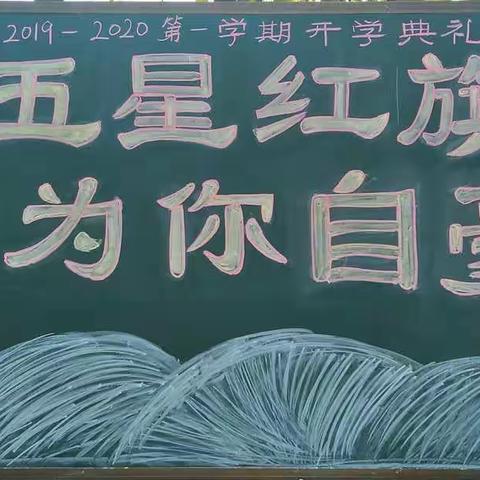 2019-2020第一学期开学典礼
五星红旗
为你自